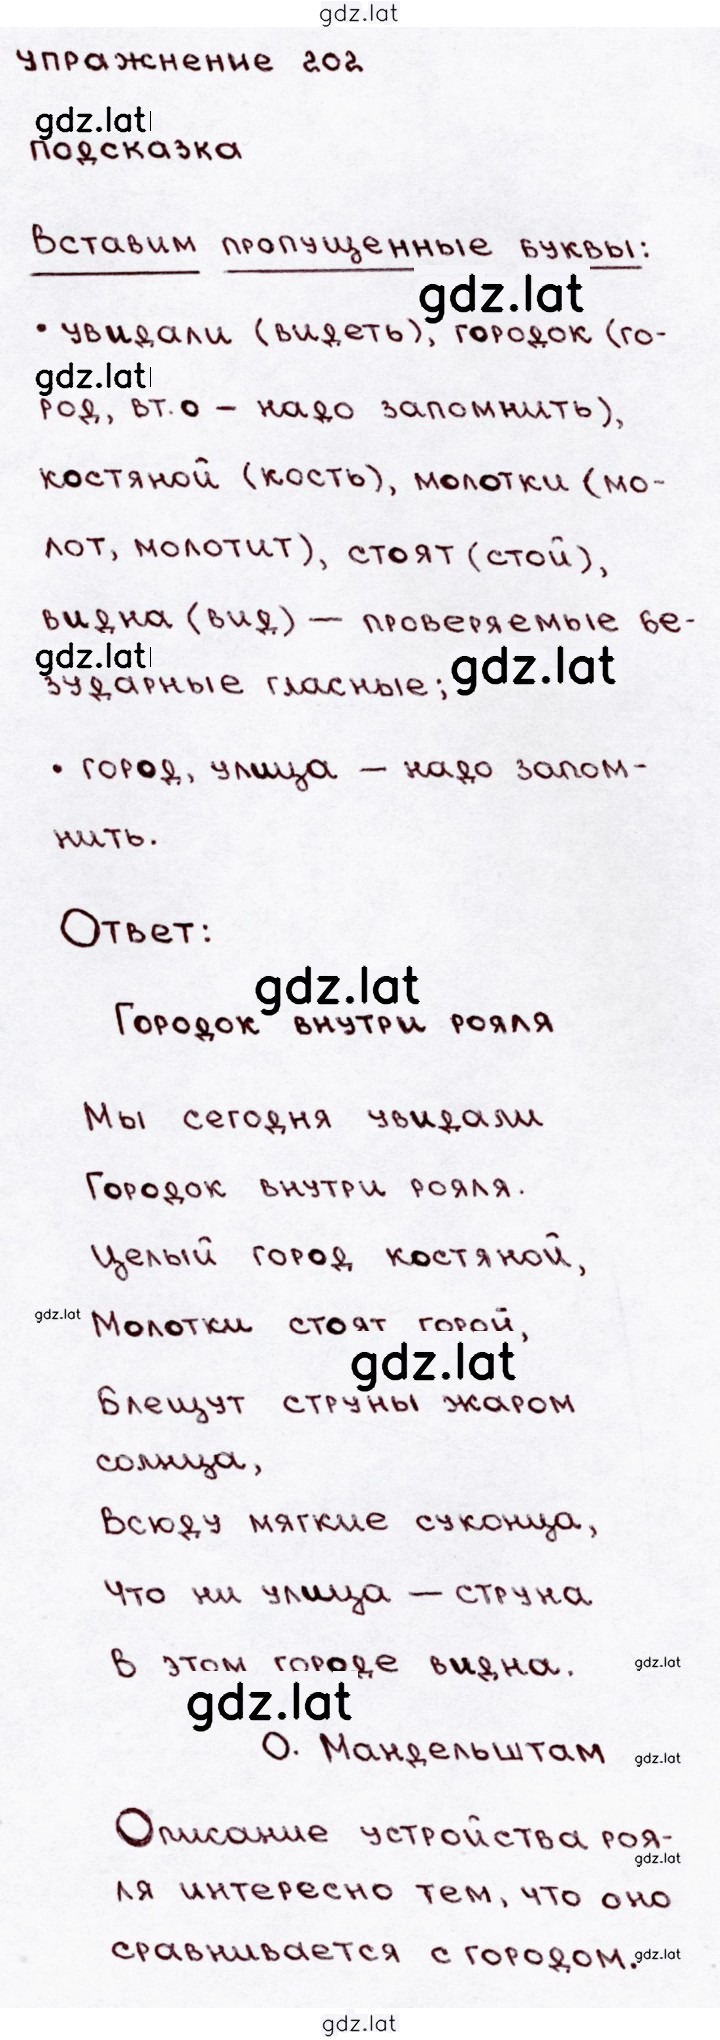 gdz.lat
упражнение 202
gdz.lat
подсказка
Вставим пропущенные буквы:
gdz.lat
• увидали (видеть), городок (го-
gdz.lat
род, вт. о – надо запомнить),
костяной (кость), молотки (мо-
лот, молотит), стоят (стой),
видна (вид) – проверяемые бе-
gdz.lat
gdz.lat
зударные гласные;
• город, улица – надо запом-
нить.
Ответ:
gdz.lat
Городок внутри рояля
Мы сегодня увидали
Городок внутри рояля.
Целый город костяной,
gdz.lat
Молотки стоят горой,
gdz.lat
Блещут струны жаром
солнца,
Всюду мягкие суконца,
Что ни улица – струна
В этом городе видна.
gdz.lat
gdz.lat
О. Мандельштам
gdz.lat
Описание устройства роя-
gdz.lat
ля интересно тем, что оно
сравнивается с городом.
gdz.lat
gdz.lat